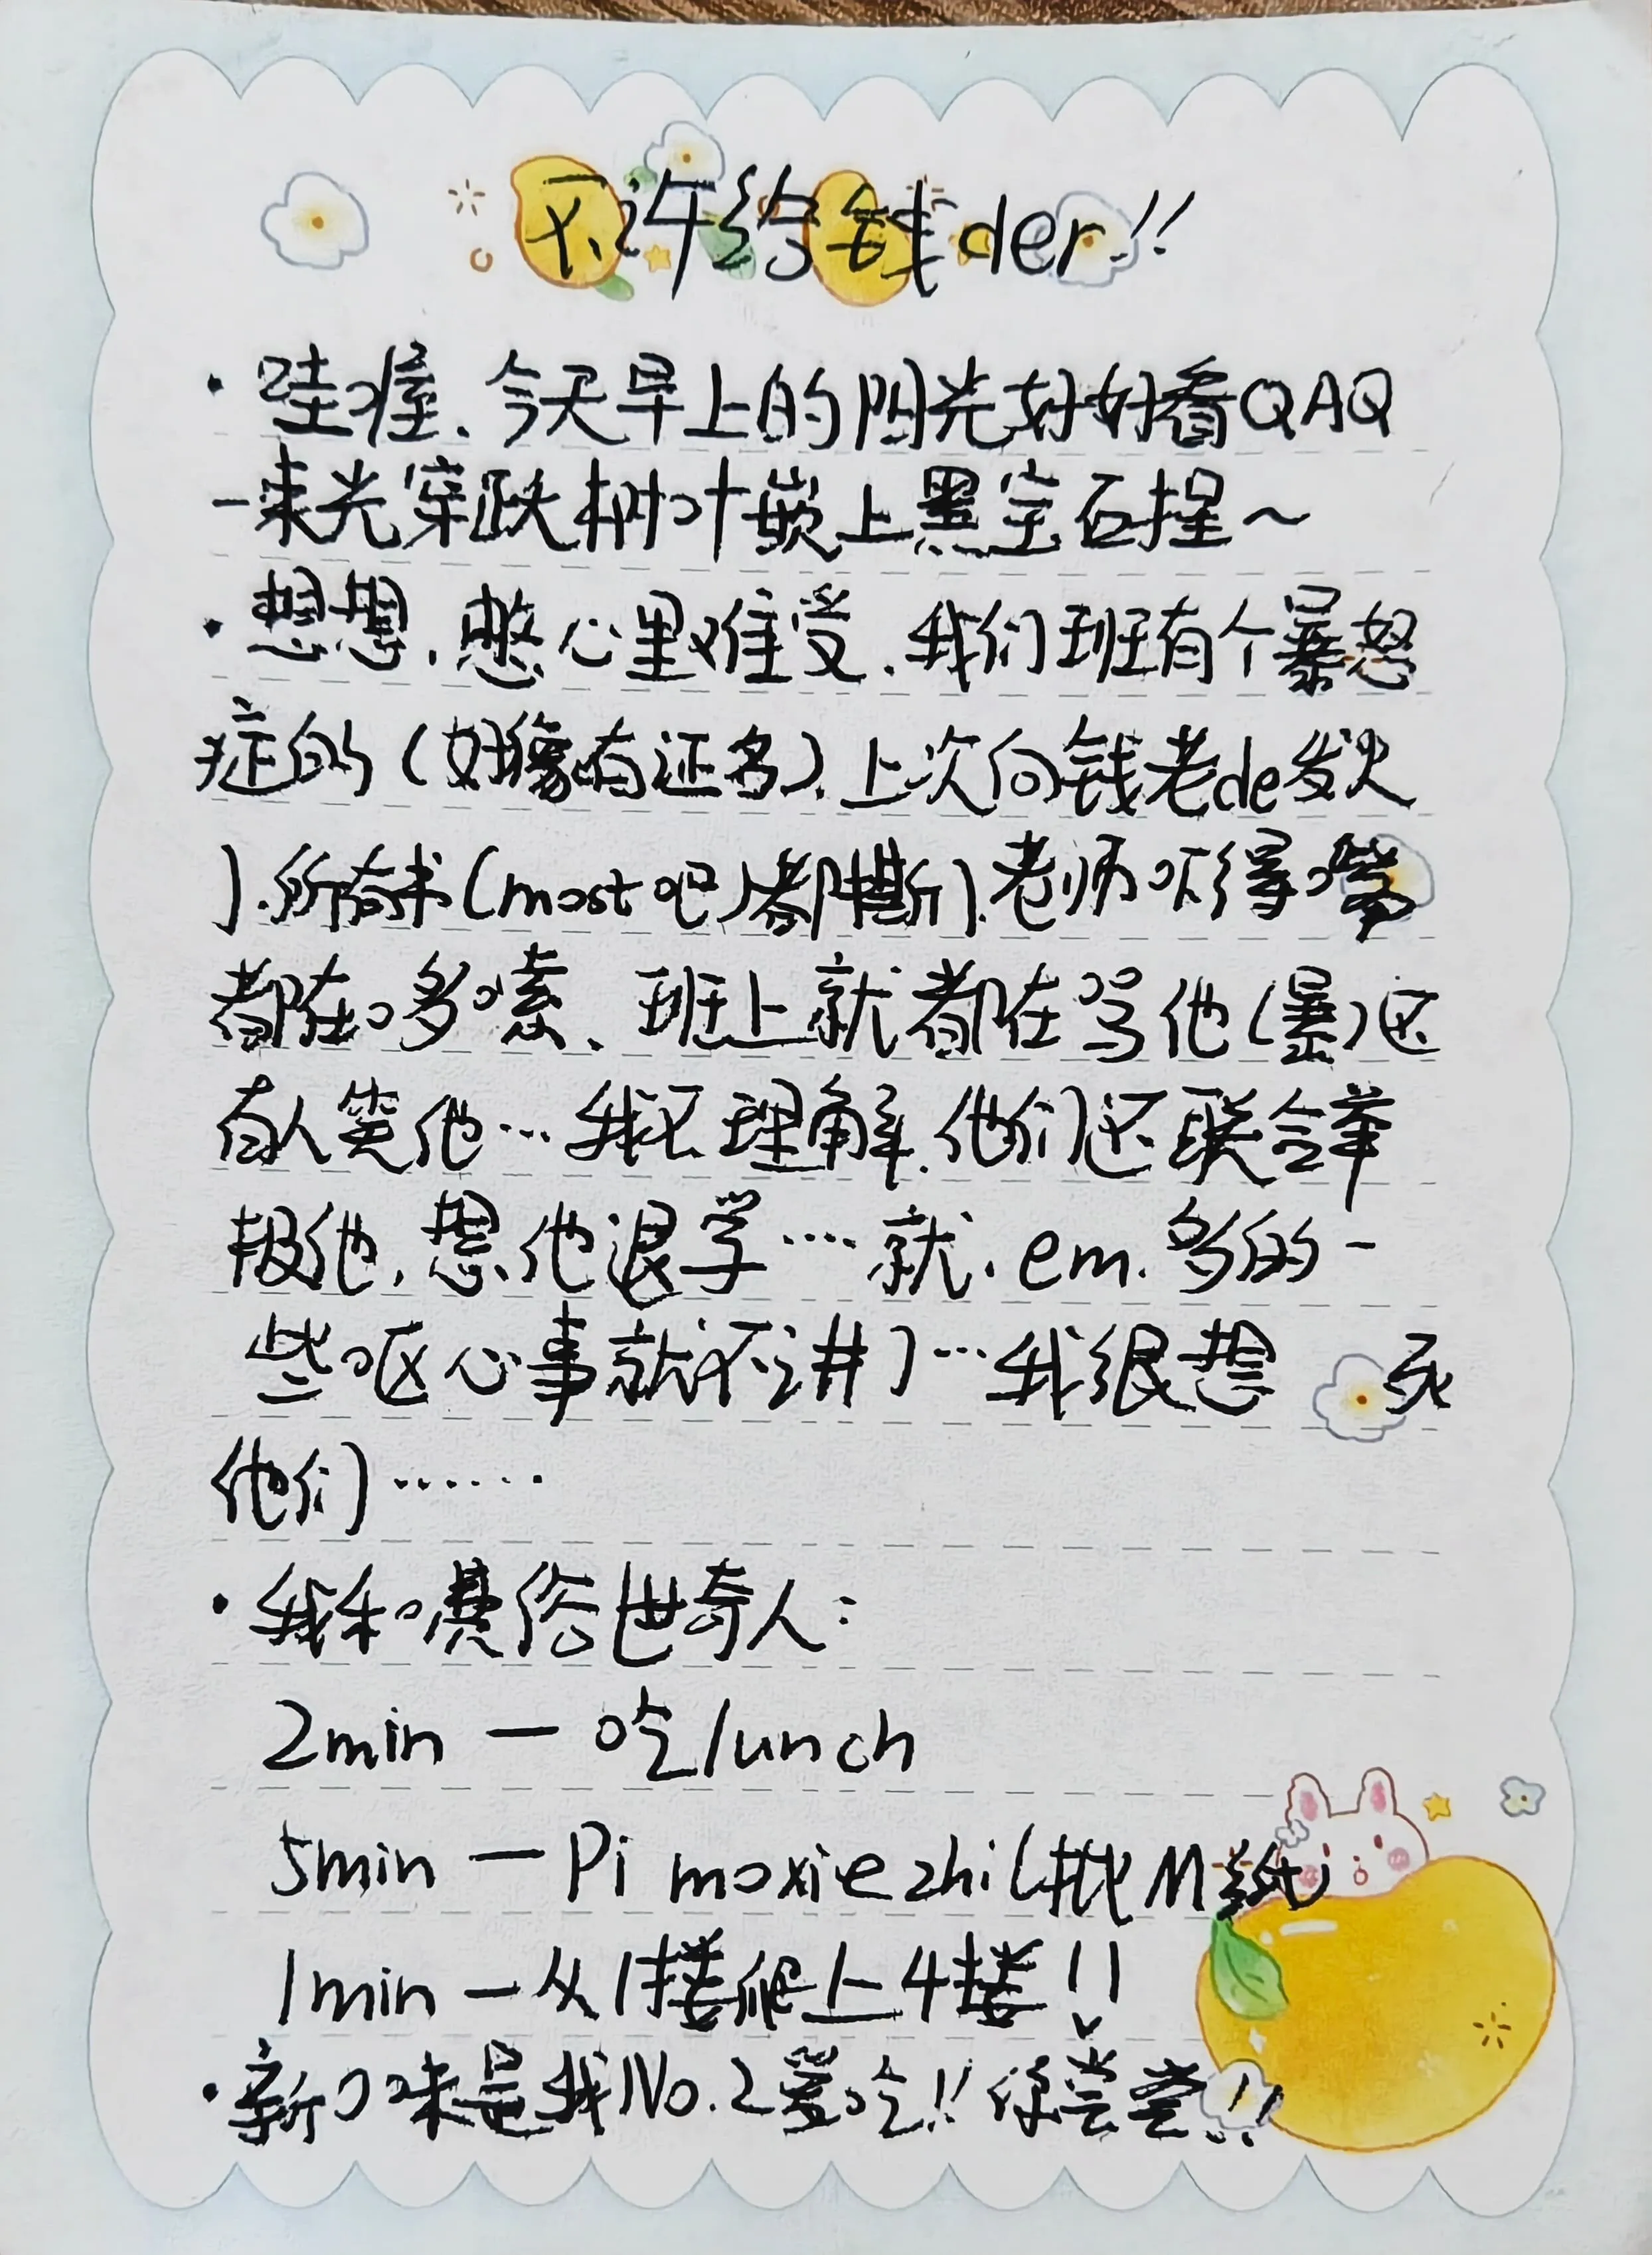 不许给钱der!!
·哇噻.今天早上的阳光好好看QAQ
一束光穿跃树叶嵌上黑宝石捏～
·想想.憋心里难受.我们班有个暴怒
症的(好像有证名).上次向钱老de发火
了.所有书(most吧)都撕了.老师吓得嘴
都在哆嗦、班上就都在骂他(暴)还
有人笑他…我不理解.他们还联合举
报他,想他退学….就.em.多的一
些呕心事就不讲了…我很想 死
他们……
·我和 俗世奇人:
2min — 吃lunch
5min — Pi moxiezhi(找M纸)
1min — 从1楼爬上4楼!!
·新口味是我No.2爱吃!!你尝尝!!